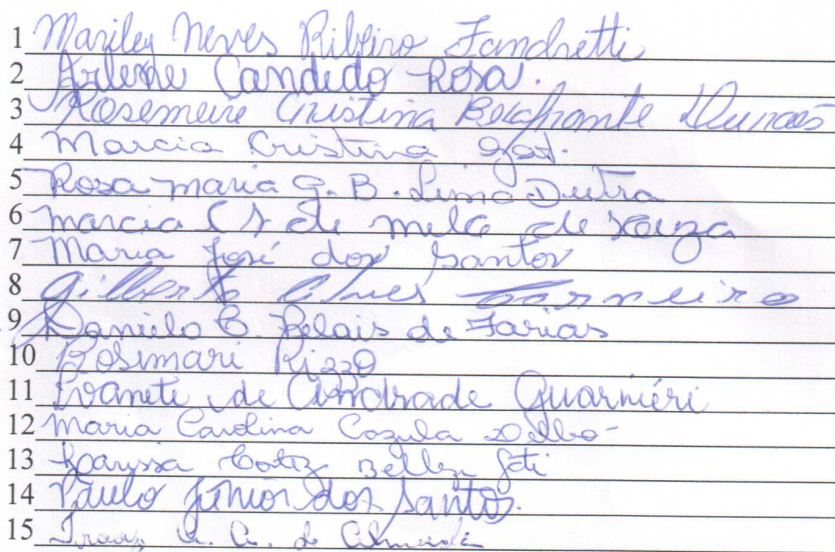 1 Mariley Neves Ribeiro Fandretti
2 Arlene Candido Rosa.
3 Rosemeire Cristina
4 Marcia Cristina
5 Rosa maria G. B. Lima Dutra
6 marcia de melo de souza
7 Maria José dos Santos
8 Gilberto Alves Carneiro
9 Danielo B. Pelais de Farias
10 Rosimari Rizzo
11 Ivanete de Andrade Guarniéri
12 Maria Carolina Cozula
13 Larissa
14 Paulo Júnior dos Santos.
15 de Almeida